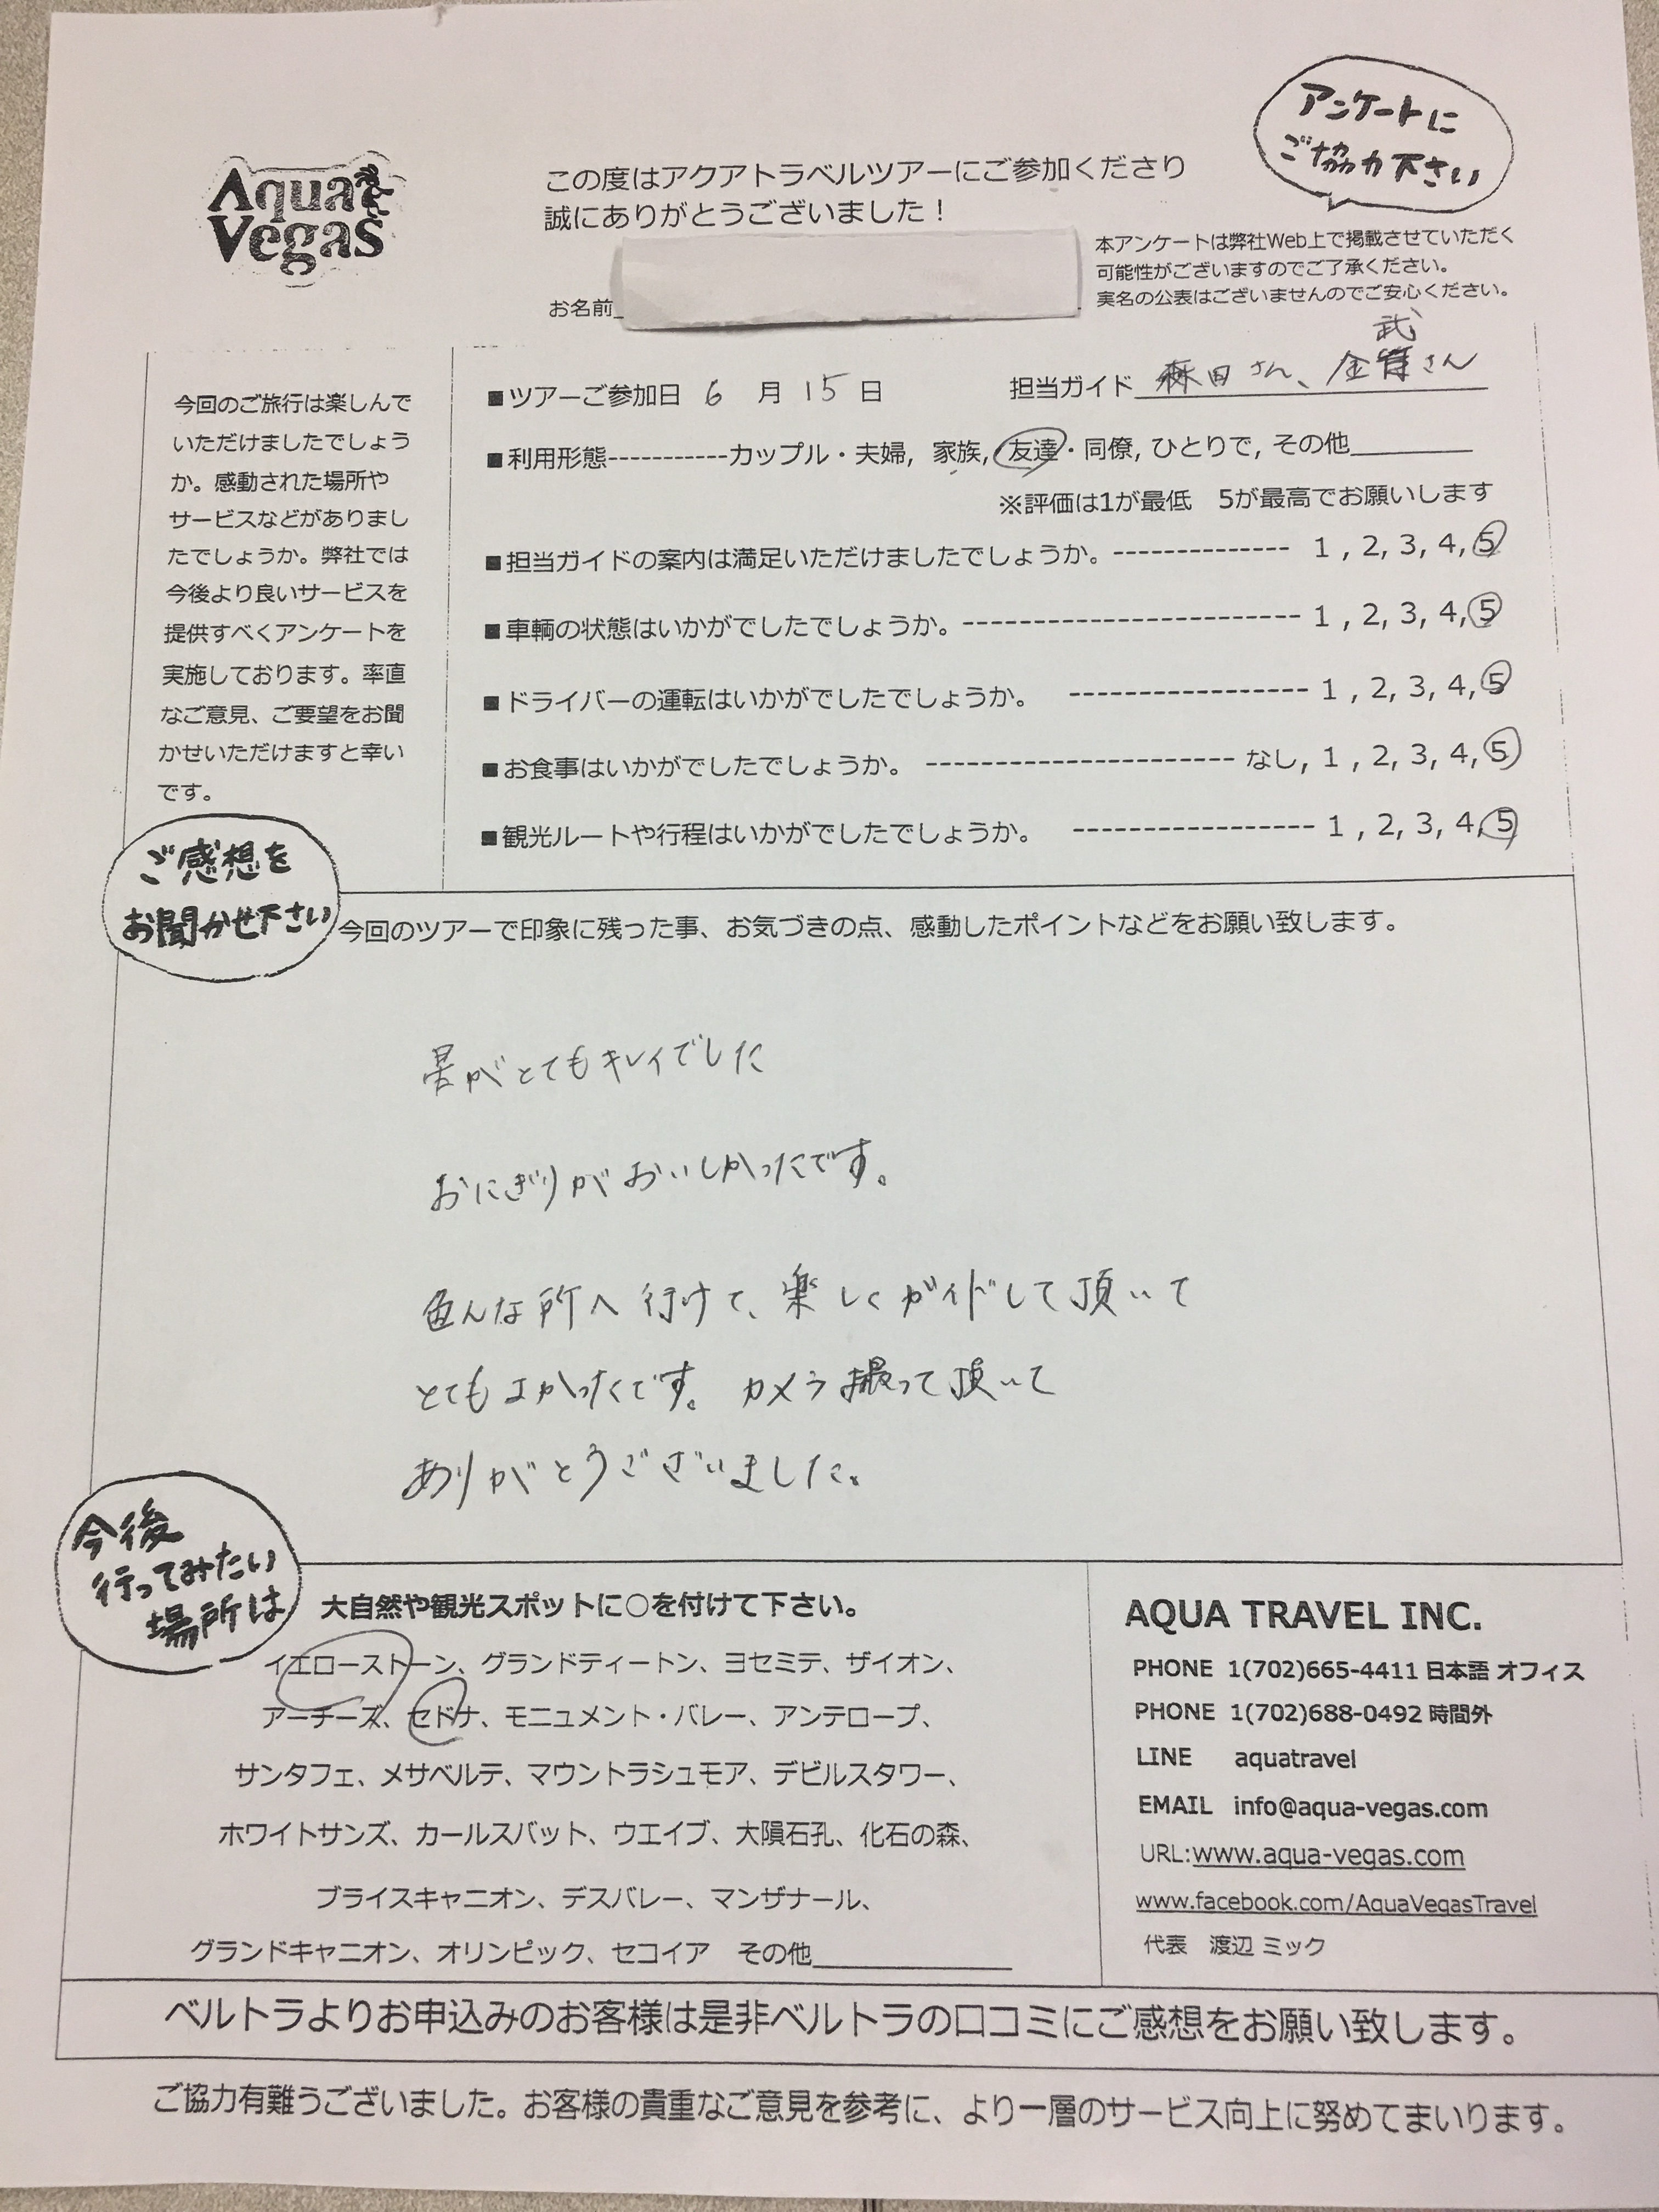 アンケートに
ご協力下さい
Aqua
Vegas
この度はアクアトラベルツアーにご参加くださり
誠にありがとうございました！
本アンケートは弊社Web上で掲載させていただく
可能性がございますのでご了承ください。
実名の公表はございませんのでご安心ください。
お名前
今回のご旅行は楽しんで
いただけましたでしょう
か。感動された場所や
サービスなどがありまし
たでしょうか。弊社では
今後より良いサービスを
提供すべくアンケートを
実施しております。率直
なご意見、ご要望をお聞
かせいただけますと幸い
です。
武
■ツアーご参加日 6 月 15 日 担当ガイド 森田さん、金 さん
■利用形態-----------カップル・夫婦, 家族, 友達・同僚, ひとりで, その他
※評価は1が最低 5が最高でお願いします
■担当ガイドの案内は満足いただけましたでしょうか。-------------- 1 , 2, 3, 4, 5
■車輌の状態はいかがでしたでしょうか。------------------------ 1 , 2, 3, 4, 5
■ドライバーの運転はいかがでしたでしょうか。 ----------------- 1 , 2, 3, 4, 5
■お食事はいかがでしたでしょうか。 ---------------------- なし, 1 , 2, 3, 4, 5
■観光ルートや行程はいかがでしたでしょうか。 ----------------- 1 , 2, 3, 4, 5
ご感想を
お聞かせ下さい
今回のツアーで印象に残った事、お気づきの点、感動したポイントなどをお願い致します。
がとてもキレイでした
おにぎりがおいしかったです。
色んな所へ行けて、楽しくガイドして頂いて
とてもよかったです。カメラ撮って頂いて
ありがとうございました。
今後
行ってみたい
場所は
大自然や観光スポットに○を付けて下さい。
イエローストーン、グランドティートン、ヨセミテ、ザイオン、
アーチーズ、セドナ、モニュメント・バレー、アンテロープ、
サンタフェ、メサベルテ、マウントラシュモア、デビルスタワー、
ホワイトサンズ、カールスバット、ウエイブ、大隕石孔、化石の森、
ブライスキャニオン、デスバレー、マンザナール、
グランドキャニオン、オリンピック、セコイア その他
AQUA TRAVEL INC.
PHONE 1(702)665-4411 日本語 オフィス
PHONE 1(702)688-0492 時間外
LINE aquatravel
EMAIL info@aqua-vegas.com
URL:www.aqua-vegas.com
www.facebook.com/AquaVegasTravel
代表 渡辺 ミック
ベルトラよりお申込みのお客様は是非ベルトラの口コミにご感想をお願い致します。
ご協力有難うございました。お客様の貴重なご意見を参考に、より一層のサービス向上に努めてまいります。